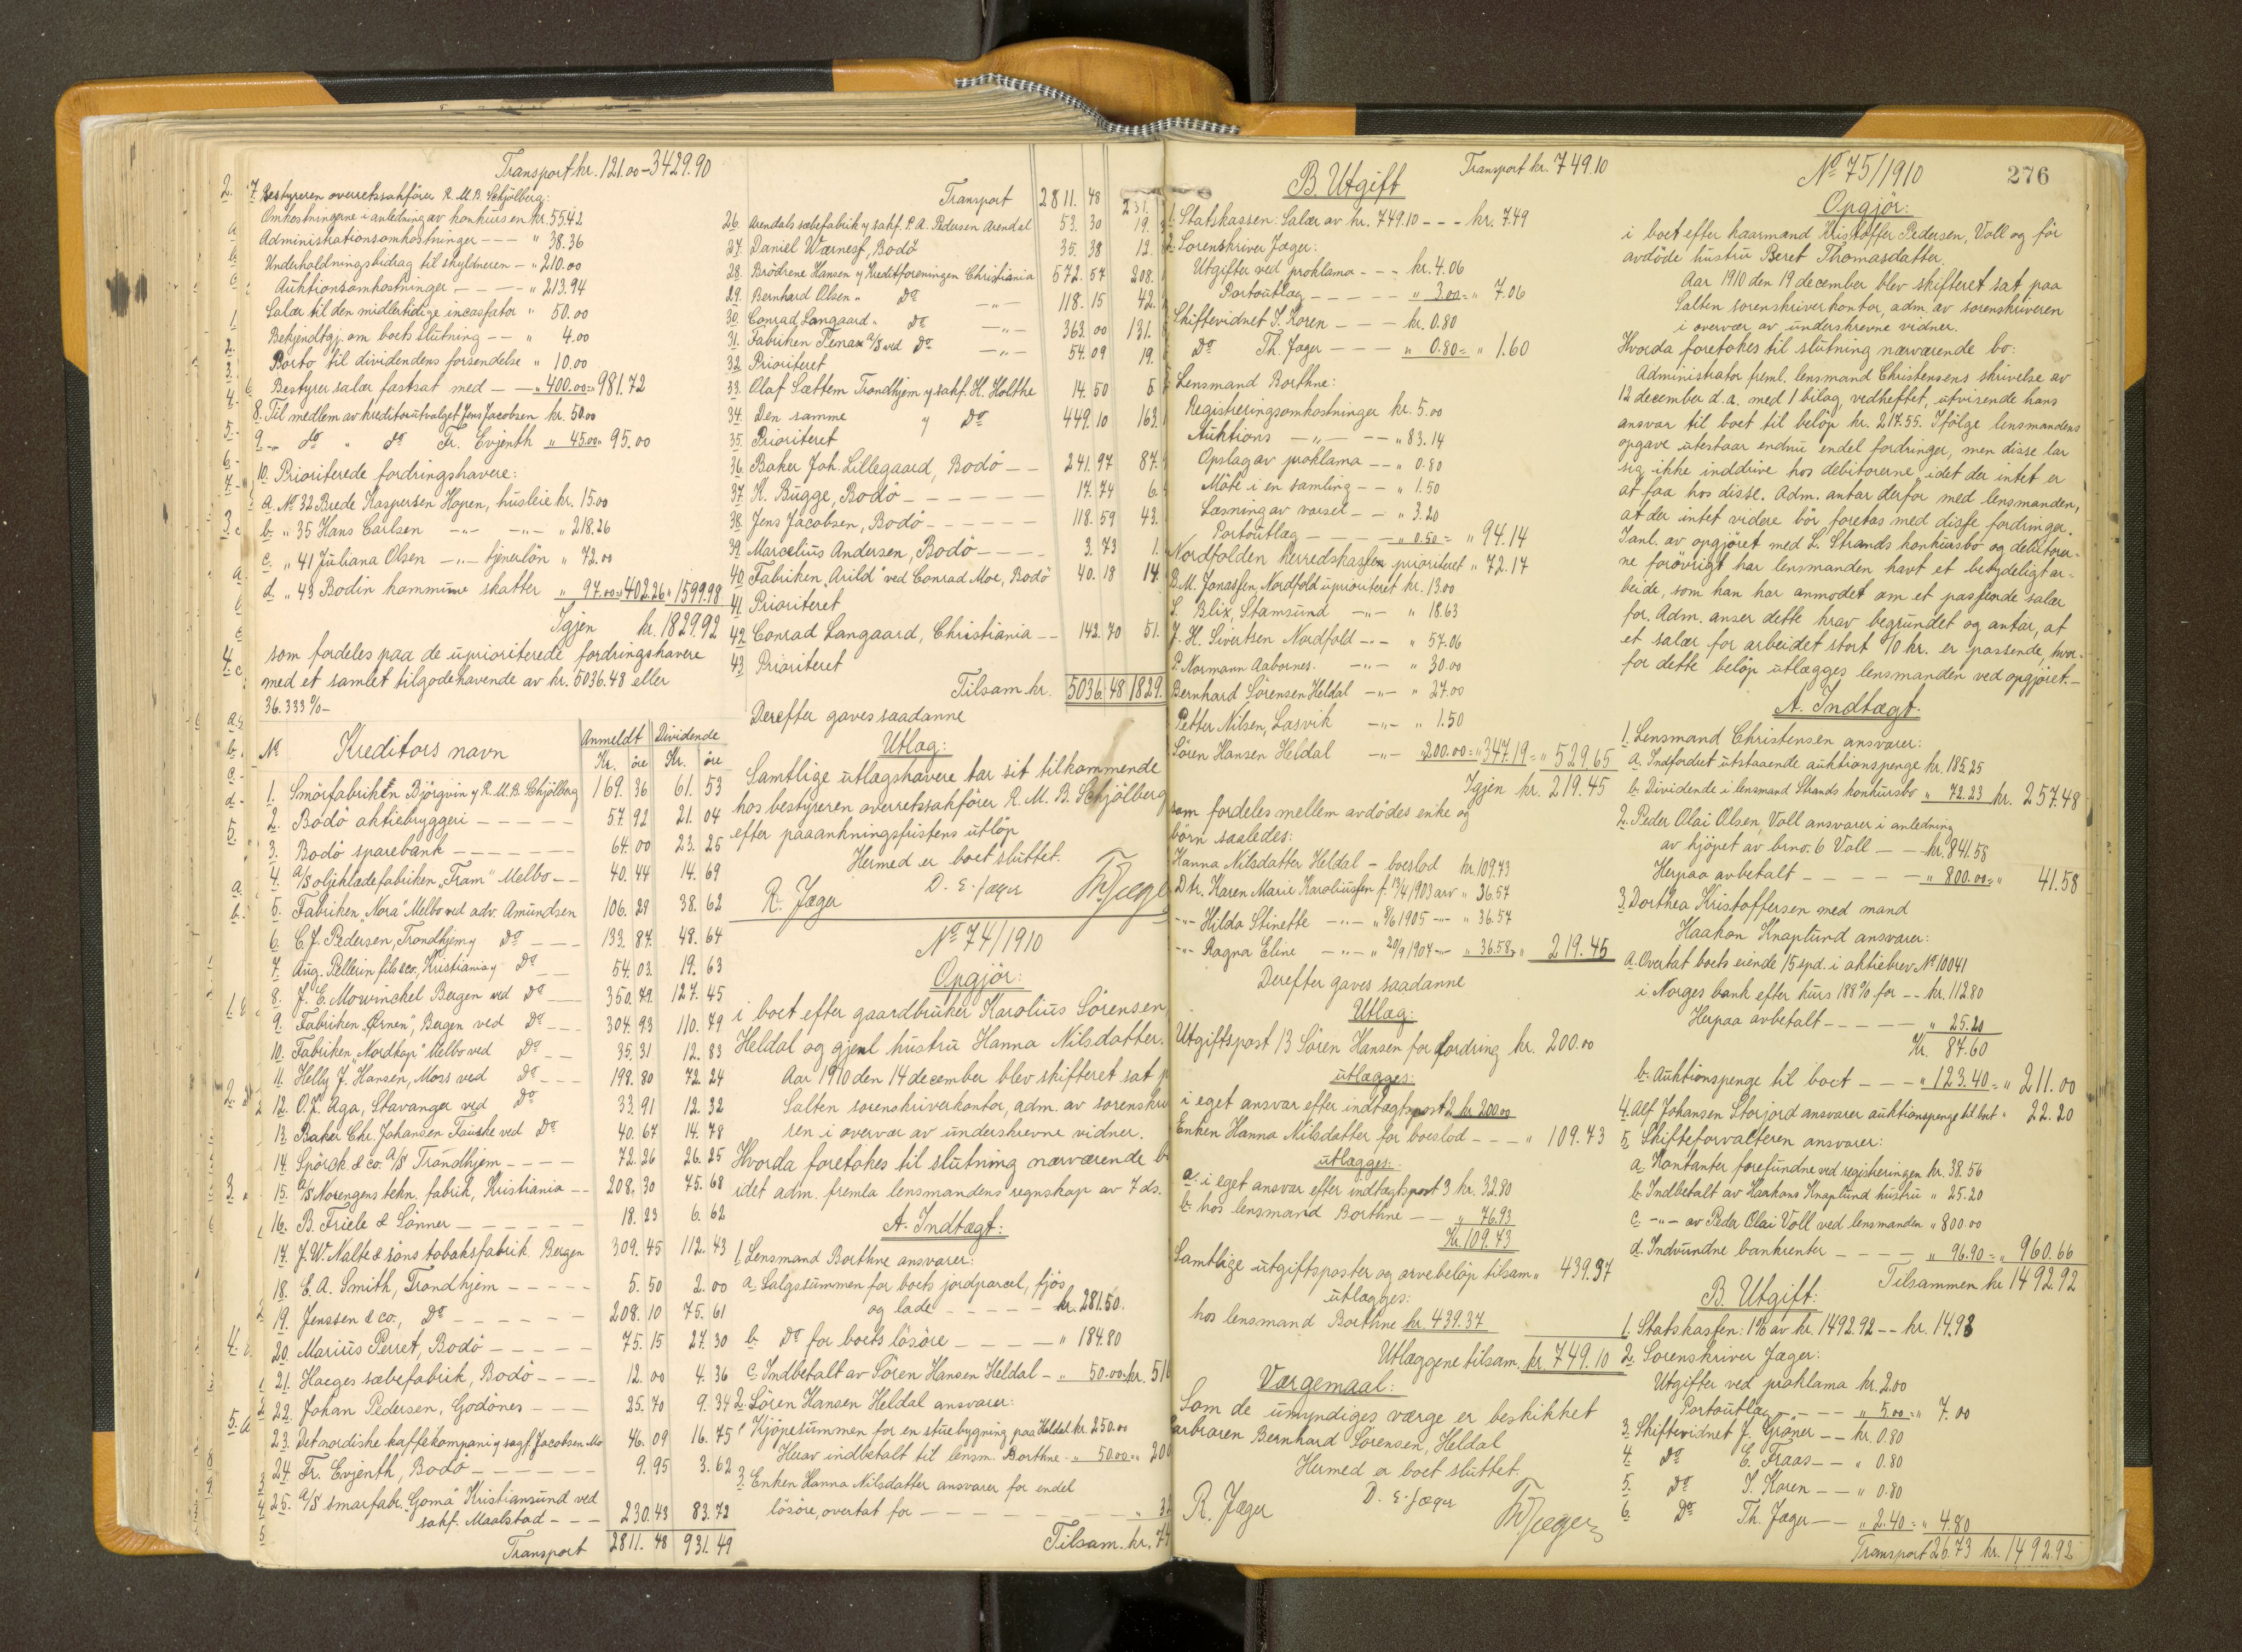 Transport kr. 121.00 - 3429.90
7. Bestyreren overretssakförer R. M. B. Schjölberg:
Omkostningerne i anledning av konkursen kr. 55.42
Administrationsomkostninger - - - " 38.36
Underholdningsbidrag til skyldneren - " 210.00
Auktionsomkostninger - - - - " 213.94
Salær til den midlertidige incassator " 50.00
Bekjendtgj. om boets slutning - - " 4.00
Porto til dividendens forsendelse " 10.00
Bestyrer salær fastsat med - - " 400.00 = 981.72
8. Til medlem av kreditorutvalget Jens Jacobsen kr. 50.00
9. - do " do Fr. Evjenth " 45.00 " 95.00
10. Prioriterede fordringshavere:
a. No 32 Brede Kaspersen Hopen, husleie kr. 15.00
b. " 35 Hans Carlsen -"- -"- " 218.26
c. " 41 Juliana Olsen -"- tjenerlön " 72.00
d. " 43 Bodin kommune skatter " 97.00 = 402.26 " 1599.98
Igjen kr. 1829.92
som fordeles paa de uprioriterede fordringshavere
med et samlet tilgodehavende av kr. 5036.48 eller
36.333 % -
No Kreditors navn Anmeldt Dividende
Kr. öre Kr. öre
1. Smörfabriken Björgvin y R. M. B. Schjölberg 169.36 61.53
2. Bodö aktiebryggeri - - - - - 57.92 21.04
3. Bodö sparebank - - - - - - - 64.00 23.25
4. A/S oljeklædefabriken "Fram" Melbo - - 40.44 14.69
5. Fabriken "Nora" Melbo ved adv. Amundsen 106.29 38.62
6. C. J. Pedersen, Trondhjem y Do - - - 133.87 48.64
7. Aug. Pellerin fils & co., Kristiania y Do - - 54.03 19.63
8. J. E. Mowinckel Bergen ved Do - - - 350.79 127.45
9. Fabriken "Örnen", Bergen ved Do - - - 304.93 110.79
10. Fabriken "Nordkap" Melbo ved Do - - 35.31 12.83
11. Helly J. Hansen, Moss ved Do - - - 198.80 72.24
12. O. J. Aga, Stavanger ved Do 33.91 12.32
13. Baker Chr. Johansen Fauske ved Do 40.67 14.78
14. Spörck & co. A/S Trondhjem - - - - 72.26 26.25
15. A/S Norengens tekn. fabrik, Kristiania - - 208.30 75.68
16. B. Friele & Sönner - - - - - - 18.23 6.62
17. J. W. Nalte & söns tobaksfabrik Bergen 309.45 112.43
18. E. A. Smith, Trondhjem - - - - - 5.50 2.00
19. Jenssen & co., Do - - - - - - 208.10 75.61
20. Marius Perret, Bodö - - - - - 75.15 27.30
21. Haeges sæbefabrik, Bodö - - - - 12.00 4.36
22. Johan Pedersen, Godönes - - - 25.70 9.34
23. Det nordiske kaffekompani y sagf. Jacobsen Mo 46.09 16.75
24. Fr. Evjenth, Bodö - - - - - - 9.95 3.62
25. A/S smørfabr. "Goma" Kristiansund ved
sakf. Maalstad - - - 230.43 83.72
Transport 2811.48 931.49
Transport 2811.48
26. Arendals sæbefabrik y sakf. P. A. Pedersen Arendal 53.30 19.
27. Daniel Wærnesf, Bodö 35.38 12.
28. Brödrene Hansen y Kreditforeningen Christiania 572.57 208.
29. Bernhard Olsen " Do -"- 118.15 42.
30. Conrad Langaard " Do -"- 363.00 131.
31. Fabriken Tenax A/S ved Do -"- 54.09 19.
32. Prioriteret
33. Olaf Sættem Trondhjem y sakf. H. Holthe 14.50 5
34. Den samme y Do 449.10 163.
35. Prioriteret
36. Baker Joh. Lillegaard, Bodö - - 241.97 87.
37. K. Bugge, Bodö - - - - - - 17.74 6.
38. Jens Jacobsen, Bodö - - - - - - 118.59 43.
39. Marcelius Andersen, Bodö - - - - 3.73 1.
40. Fabriken "Arild" ved Conrad Moe, Bodö 40.18 14.
41. Prioriteret
42. Conrad Langaard, Christiania - - 142.70 51.
43. Prioriteret
Tilsam. kr. 5036.48 1829.
Derefter gaves saadanne
Utlæg:
Samtlige utlægshavere tar sit tilkommende
hos bestyreren overretssakförer R. M. B. Schjölberg
efter paaankningsfristens utlöp
Hermed er boet sluttet.
R. Jæger D. E. Jæger Th. Jæger
No 74/1910
Opgjör:
i boet efter gaardbruker Karolius Sörensen
Heldal og gjenl hustru Hanna Nilsdatter.
Aar 1910 den 14 december blev skifteret sat p
Salten sorenskriverkontor, adm. av sorenskri
ren i overvær av underskrevne vidner.
Hvorda foretokes til slutning nærværende b
idet adm. fremla lensmandens regnskap av 7 ds.
A. Indtægt:
1. Lensmand Borthne ansvarer:
a. Salgssummen for boets jordparcel, fjös
og lade - - - - - kr. 281.50
b. Do for boets lösöre - - - - " 184.80
c. Indbetalt av Sören Hansen Heldal - " 50.00 = kr. 516
2. Sören Hansen Heldal ansvarer:
Kjöpesummen for en stuebygning paa Heldal kr. 250.00
Herav indbetalt til lensm. Borthne " 50.00 = " 200
3. Enken Hanna Nilsdatter ansvarer for endel
lösöre, overtat for - - - - - - - - " 32
Tilsam. kr. 74
B. Utgift Transport kr. 749.10
1. Statskassen: Salær av kr. 749.10 - - - kr. 7.49
2. Sorenskriver Jæger:
Utgifter ved proklama - - - kr. 4.06
Portoutlæg - - - - - " 3.00 = " 7.06
Skiftevidnet J. Koren - - - kr. 0.80
Do Th. Jæger - - - " 0.80 = " 1.60
Lensmand Borthne:
Registreringsomkostninger kr. 5.00
Auktions -"- - - " 83.14
Opslag av proklama - - " 0.80
Möte i en samling - - " 1.50
Læsning av varsel - - " 3.20
Portoutlæg - - - - " 0.50 = " 94.14
Nordfolden herredskassen prioriteret " 72.17
B. M. Jonassen, Nordfold uprioriteret kr. 13.00
S. Blix, Stamsund -"- " 18.63
J. H. Sivertsen Nordfold -"- " 57.06
P. Normann Aabornes. -"- " 30.00
Bernhard Sörensen Heldal -"- " 27.00
Petter Nilsen, Lasvik -"- " 1.50
Sören Hansen Heldal -"- " 200.00 = " 347.19 = " 529.65
Igjen kr. 219.45
som fordeles mellem avdödes enke og
börn saaledes:
Hanna Nilsdatter Heldal - boeslod kr. 109.73
Dtr. Karen Marie Karoliussen f. 13/4 1903 arv " 36.57
-"- Hilda Stinette -"- " 8/6 1905 -"- " 36.57
-"- Ragna Eline -"- " 20/9 1907 -"- " 36.58 = " 219.45
Derefter gaves saadanne
Utlæg:
Utgiftspost 13 Sören Hansen for fordring kr. 200.00
utlægges:
i eget ansvar efter indtægtspost 2 kr. 200.00
Enken Hanna Nilsdatter for boeslod - - - " 109.73
utlægges:
a. i eget ansvar efter indtægtspost 3 kr. 32.80
b. hos lensmand Borthne - - " 76.93
Kr. 109.73
Samtlige utgiftsposter og arvebelöp tilsam " 439.37
utlægges:
hos lensmand Borthne kr. 439.37
Utlæggene tilsam. kr. 749.10
Værgemaal:
Som de umyndiges værge er beskikket
farbroren Bernhard Sörensen, Heldal
Hermed er boet sluttet.
R. Jæger D. E. Jæger Th Jæger
No 75/1910 276
Opgjör:
i boet efter kaarmand Kristoffer Pedersen, Voll og för
avdöde hustru Beret Thomasdatter.
Aar 1910 den 19 december blev skifteret sat paa
Salten sorenskriverkontor, adm. av sorenskriveren
i overvær av underskrevne vidner.
Hvorda foretokes til slutning nærværende bo:
Administrator freml. lensmand Christensens skrivelse av
12 december d. a. med 1 bilag, vedheftet, utvisende hans
ansvar til boet til belöp kr. 217.55. Ifölge lensmandens
opgave utestaar endnu endel fordringer, men disse lar
sig ikke inddrive hos debitorerne, idet der intet er
at faa hos disse. Adm. antar derfor med lensmanden,
at der intet videre bör foretas med disse fordringer.
I anl. av opgjöret med L. Strands konkursbo og debitorer-
ne forövrigt har lensmanden havt et betydeligt ar-
beide, som han har anmodet om et passende salær
for. Adm. anser dette krav begrundet og antar, at
et salær for arbeidet stort 40 kr. er passende, hvor-
for dette belöp utlægges lensmanden ved opgjöret. -
A. Indtægt.
1. Lensmand Christensen ansvarer:
a. Indfordret utstaaende auktionspenge kr. 185.25
b. Dividende i lensmand Strands konkursbo " 72.23 kr. 257.48
2. Peder Olai Olsen, Voll ansvarer i anledning
av kjöpet av brno. 6 Voll - - kr. 841.58
Herpaa avbetalt - - - - - " 800.00 = " 41.58
3. Dorthea Kristoffersen med mand
Haakon Knaplund ansvarer:
a. Overtat boets eiende 15 spd. i aktiebrev No 10041
i Norges bank efter kurs 188% for - - kr. 112.80
Herpaa avbetalt - - - - - " 25.20
Kr. 87.60
b. Auktionspenge til boet - - - " 123.40 = " 211.00
4. Alf Johansen Storjord ansvarer auktionspenge til boet " 22.20
5. Skifteforvalteren ansvarer:
a. Kontanter forefundne ved registreringen kr. 38.56
b. Indbetalt av Haakons Knaplund hustru " 25.20
c. -"- av Peder Olai Voll ved lensmanden " 800.00
d. Indvundne bankrenter - - - - " 96.90 = " 960.66
Tilsammen kr. 1492.92
B. Utgift:
1. Statskassen: 1% av kr. 1492.92 - - kr. 14.93
2. Sorenskriver Jæger:
Utgifter ved proklama kr. 2.00
Portoutlæg - - - - " 5.00 = " 7.00
3. Skiftevidnet J. Gröner - - kr. 0.80
4. Do C. Fraas - - " 0.80
5. Do J. Koren - - " 0.80
6. Do Th. Jæger - - " 2.40 = " 4.80
Transport 26.73 kr. 1492.92